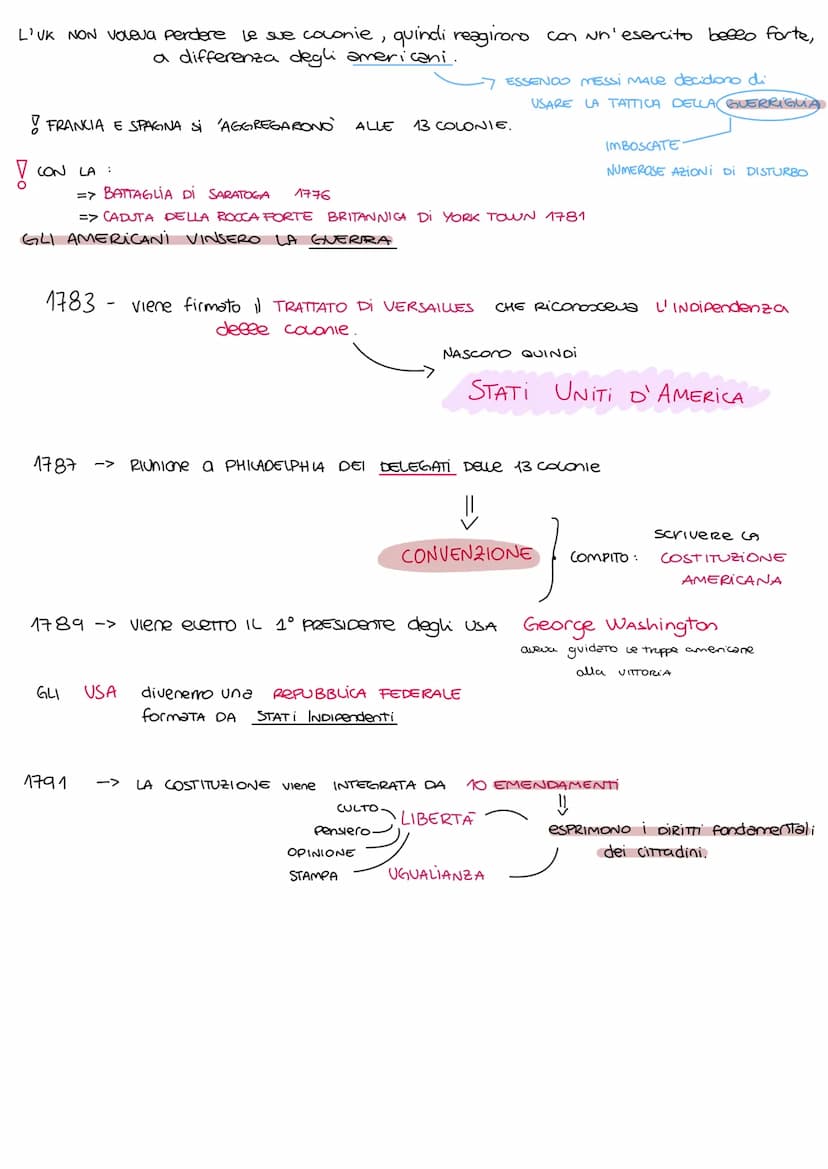 L'UK NON VOLEVA PERDERE LE SUE COLONIE, quindi reagirono con un'esercito bello forte,
a differenza degli americani.
ESSENDO MESSI MALE decidono di
USARE LA TATTICA DELLA GUERRIGLIA
! FRANCIA E SPAGNA Si 'AGGREGARONO' ALLE 13 COLONIE.
IMBOSCATE
NUMEROSE AZIONI DI DISTURBO
! CON LA :
=> BATTAGLIA Di SARATOGA 1776
=> CADUTA DELLA ROCCA FORTE BRITANNICA Di YORK TOWN 1781
GLI AMERICANI VINSERO LA GUERRA
1783 - viene firmato il TRATTATO Di VERSAILLES CHE RiCONOSCEVA L'INDIPENDENZA
delle colonie.
NASCONO QUINDI
STATI UNITI D'AMERICA
1787 -> RIUNIONE a PHILADELPHIA DEI DELEGATI DELLE 13 COLONIE
CONVENZIONE
COMPITO :
SCRIVERE LA
COSTITUZIONE
AMERICANA
1789 -> VIENE ELETTO IL 1° PRESIDENTE degli USA George Washington
aveva guidato le truppe americane
alla VITTORIA
GLI USA divennero una REPUBBLICA FEDERALE
formata DA STATI INDIPENDENTI
1791 -> LA COSTITUZIONE viene INTEGRATA DA 10 EMENDAMENTI
CULTO
Pensiero
OPINIONE
STAMPA
LIBERTÀ
UGUALIANZA
ESPRIMONO i DIRITTI fondamentali
dei cittadini.